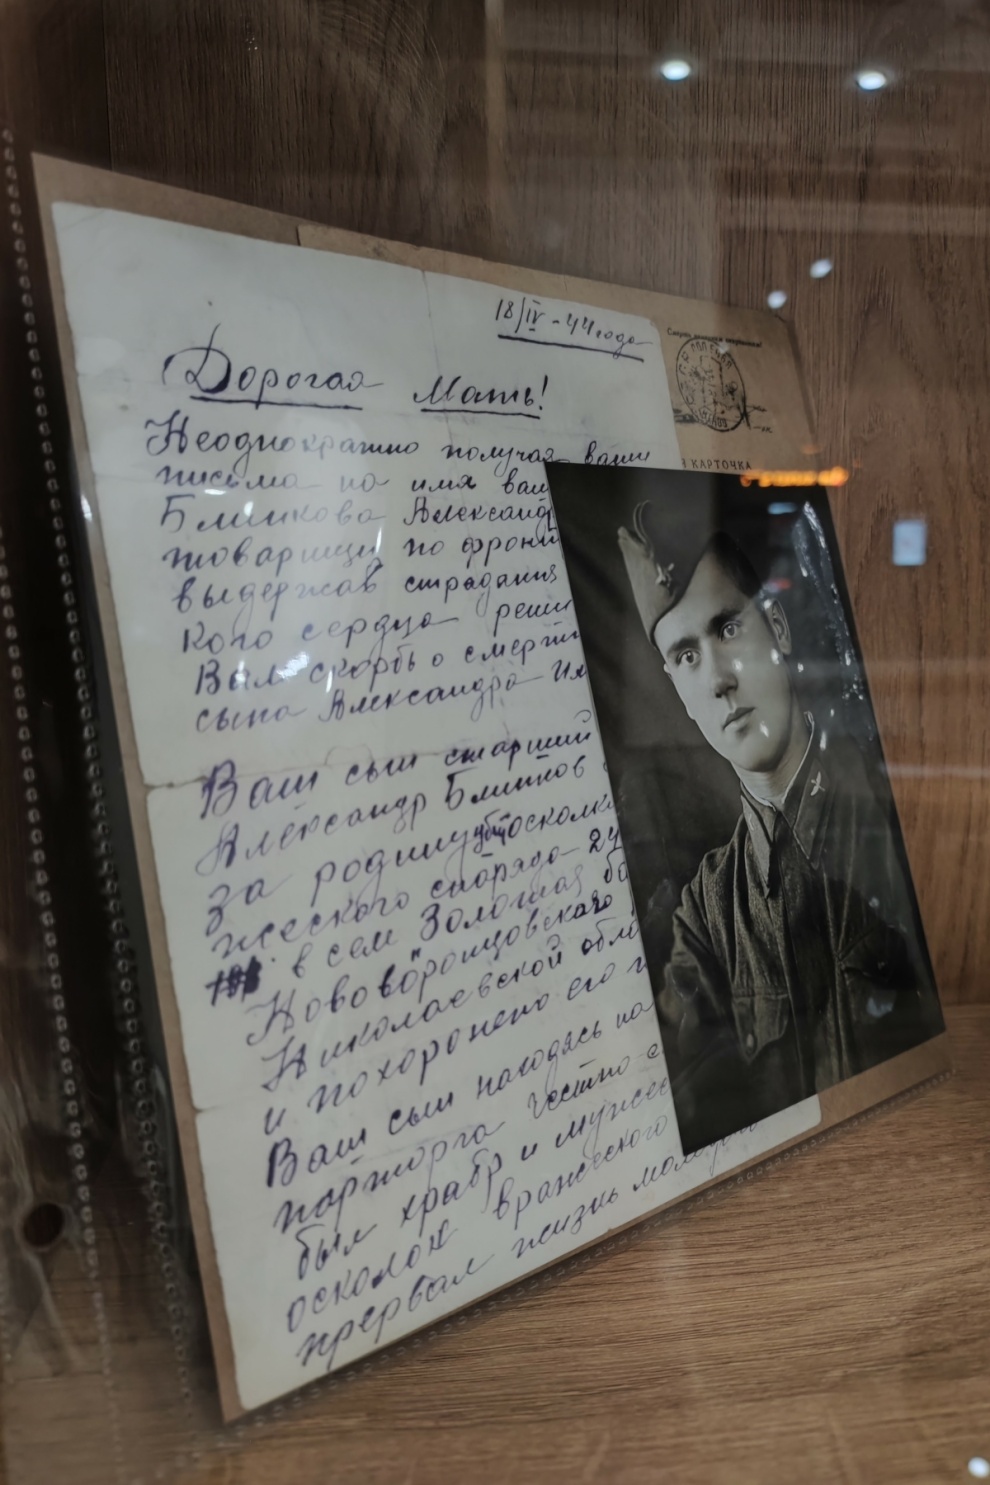 18/IV-44 года
Дорогая Мать!
Неоднократно получая ваши
письма на имя ваш
Блинкова Александр
товарищи по фронт
выдержав страдания
кого сердца реши
Вам скорбь о смерти
сына Александра Их
Ваш сын старший
Александр Блинков
за родину убит осколк
жеского снаряда 24
в сем Золотая ба
Нововоронцовского
Николаевской обла
и похоронено его
Ваш сын находясь на
парторга честно с
был храбр и мужес
осколок вражеского
прервал жизнь мол
Я КАРТОЧКА